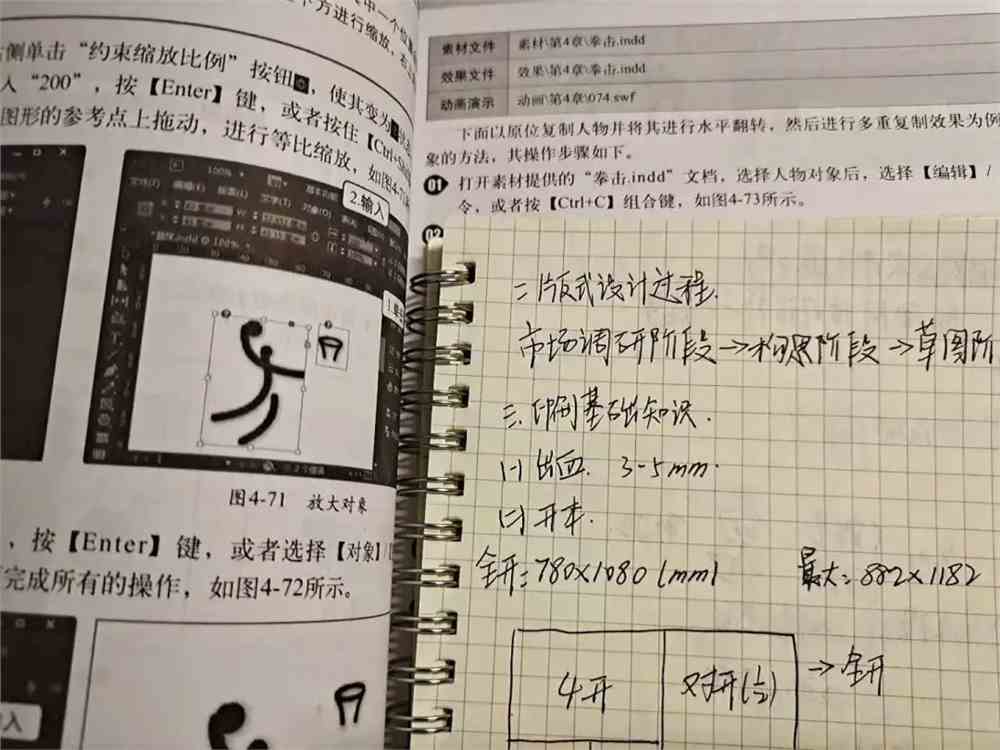 中一个
下方进行缩放，右
侧单击“约束缩放比例”按钮，使其变为
入“200”，按【Enter】键，或者按住【Ctrl+S
图形的参考点上拖动，进行等比缩放，如图4-7
100%
2.输入
图4-71 放大对象
，按【Enter】键，或者选择【对象】/
完成所有的操作，如图4-72所示。
入
素材文件 素材\第4章\拳击.indd
效果文件 效果\第4章\拳击.indd
动画演示 动画\第4章\074.swf
下面以原位复制人物并将其进行水平翻转，然后进行多重复制效果为例
象的方法，其操作步骤如下。
01 打开素材提供的“拳击.indd”文档，选择人物对象后，选择【编辑】/
令，或者按【Ctrl+C】组合键，如图4-73所示。
02
二、版式设计过程.
市场调研阶段→构思阶段→草图阶
三、印刷基础知识.
(一)出血. 3-5mm.
(二)开本.
全开：780×1080(mm) 最大：882×1182
4开 对开(1/2) →全开